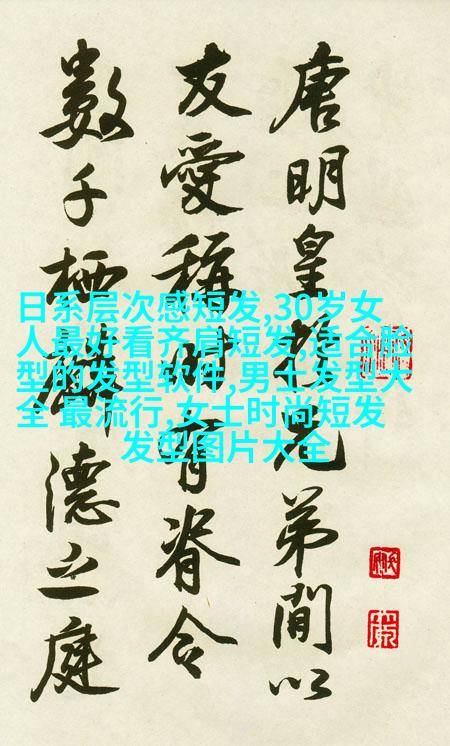 唐明皇兄弟間以
友愛稱時有脊令
數千栖麟德之庭
日系层次感短发,30岁女
人最好看齐肩短发,适合脸
型的发型软件,男士发型大
全 最流行,女士时尚短发
发型图片大全